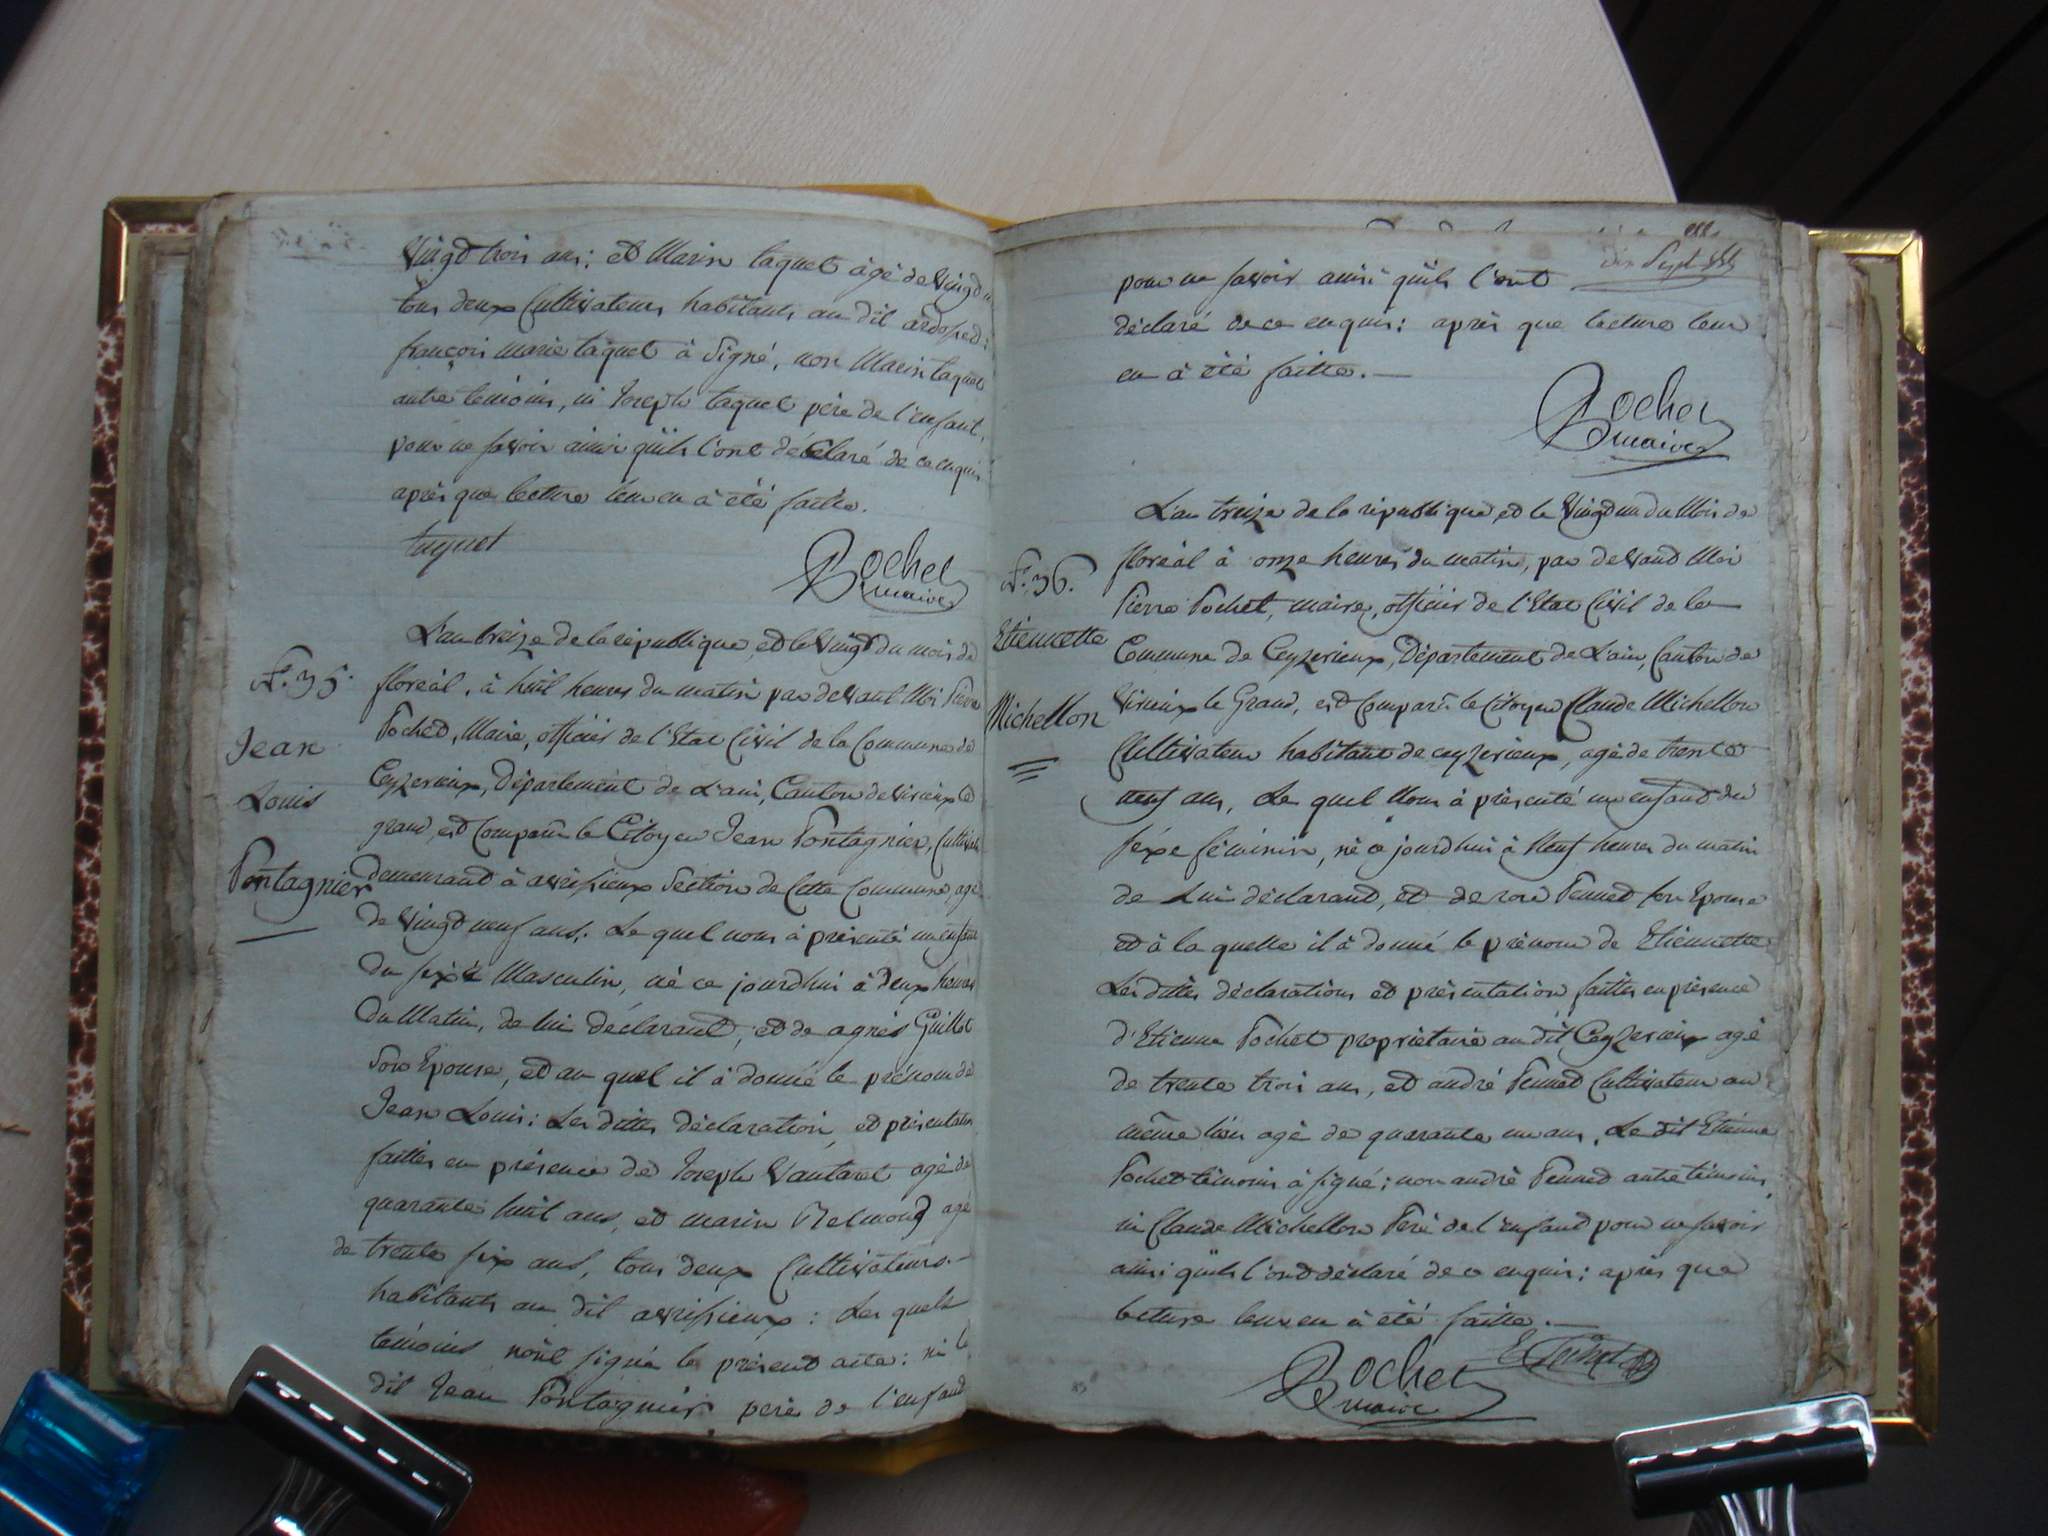 Vingd trois ans; et Marin taquet âgé de Vingd
tous deux Cultivateurs habitants au dit
françois marie taquet à Signé, non Marin taquet
autre temoins, ni Joseph taquet père de l'enfant,
pour ne savoir ainsi quïls l'ont déClaré de ce enquis
après que lecture leur en à été faitte.
taquet
Pochet
maire
N.° 35.
Jean
Louis
Pontagnier
L'an treize de la république, et le Vingt du mois de
floréal, à huit heures du matin par devant Moi Pierre
Pochet, Maire, officier de l'Etat Civil de la Commune de
Ceyzerieux, Département de L'ain, Canton de Virieux le
grand, est Comparu le Citoyen Jean Pontagnier, Cultivat
demeurant à avrissieux Section de Cette Commune, agé
de Vingd neuf ans,. Le quel nous à présenté un enfant
du sexe Masculin, né ce jourdhui à deux heures
du Matin, de lui déclarant, et de agnés Guillot
Son Epouse, et au quel il à donné le prénom de
Jean Louis: Les dittes déclaration, et présentation
faittes en présence de Joseph Vautaret agé de
quarante huit ans, et marin Belmond agé
de trente six ans, tous deux Cultivateurs
habitants au dit avrissieux: Les quels
témoins n'ont signé le présent acte: ni le
dit Jean Pontagnier père de l'enfand
dix Sept
pour ne savoir ainsi quïls l'ont
déclaré de ce enquis: après que lecture leur
en à été faitte.
Pochet
maire
N.° 36.
Etiennette
Michellon
L'an treize de la république et le Vingd un du Mois de
floréal à onze heures du matin, par devand Moi
Pierre Pochet, maire, officier de l'Etat Civil de la
Commune de Ceyzerieux, Département de L'ain, Canton de
Virieux le Grand, est Comparu le Citoyen Claude Michellon
Cultivateur habitant de ceyzerieux, agé de trente
neuf ans, Le quel Nous à présenté un enfand du
sexe féminin, né ce jourdhui à Neuf heures du matin
de Lui déclarant, et de Pennet son Epouse
et à la quelle il à donné le prénom de Etiennette
Les dittes déclarations et présentation faittes en présence
d'Etienne Pochet propriétaire au dit Ceyzerieux agé
de trente trois ans, et andré Pennet Cultivateur au
même lieu agé de quarante un ans, Le dit Etienne
Pochet témoins à signé; non andré Pennet autre témoins,
ni Claude Michellon Peré de l'enfand pour ne savoir
ainsi quïls l'ont déclaré de ce enquis: après que
lecture leur en à été faitte.
E Pochet
Pochet
maire